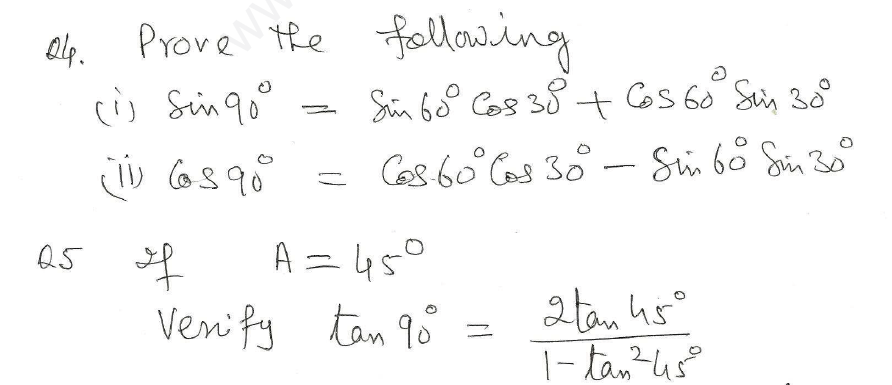 Q4. Prove the following
(i) Sin 90° = Sin 60° Cos 30° + Cos 60° Sin 30°
(ii) Cos 90° = Cos 60° Cos 30° – Sin 60° Sin 30°
Q5 If A = 45°
Verify tan 90° = 2tan 45° / 1 – tan² 45°